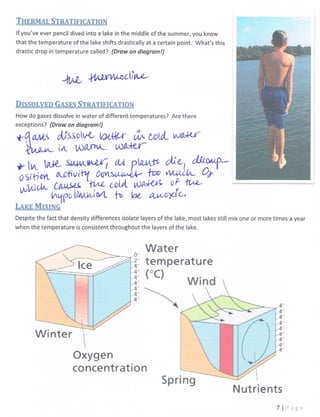 THERMAL STRATIFICATION
If you've ever pencil dived into a lake in the middle of the summer, you know
that the temperature of the lake shifts drastically at a certain point. What's this
drastic drop in temperature called? (Draw on diagram!)
the thermocline
DISSOLVED GASES STRATIFICATION
How do gases dissolve in water of different temperatures? Are there
exceptions? (Draw on diagram!)
* gases dissolve better in cold water
than in warm water
* In late summer, as plants die, decomp-
osition activity consumes too much O2
which causes the cold waters of the
hypolimnion to be anoxic.
LAKE MIXING
Despite the fact that density differences isolate layers of the lake, most lakes still mix one or more times a year
when the temperature is consistent throughout the layers of the lake.
Water
temperature
(°C)
Ice
0°
2°
4°
4°
4°
4°
4°
4°
Wind
4°
4°
4°
4°
4°
4°
4°
Winter
Oxygen
concentration
Spring
Nutrients
7 | Page